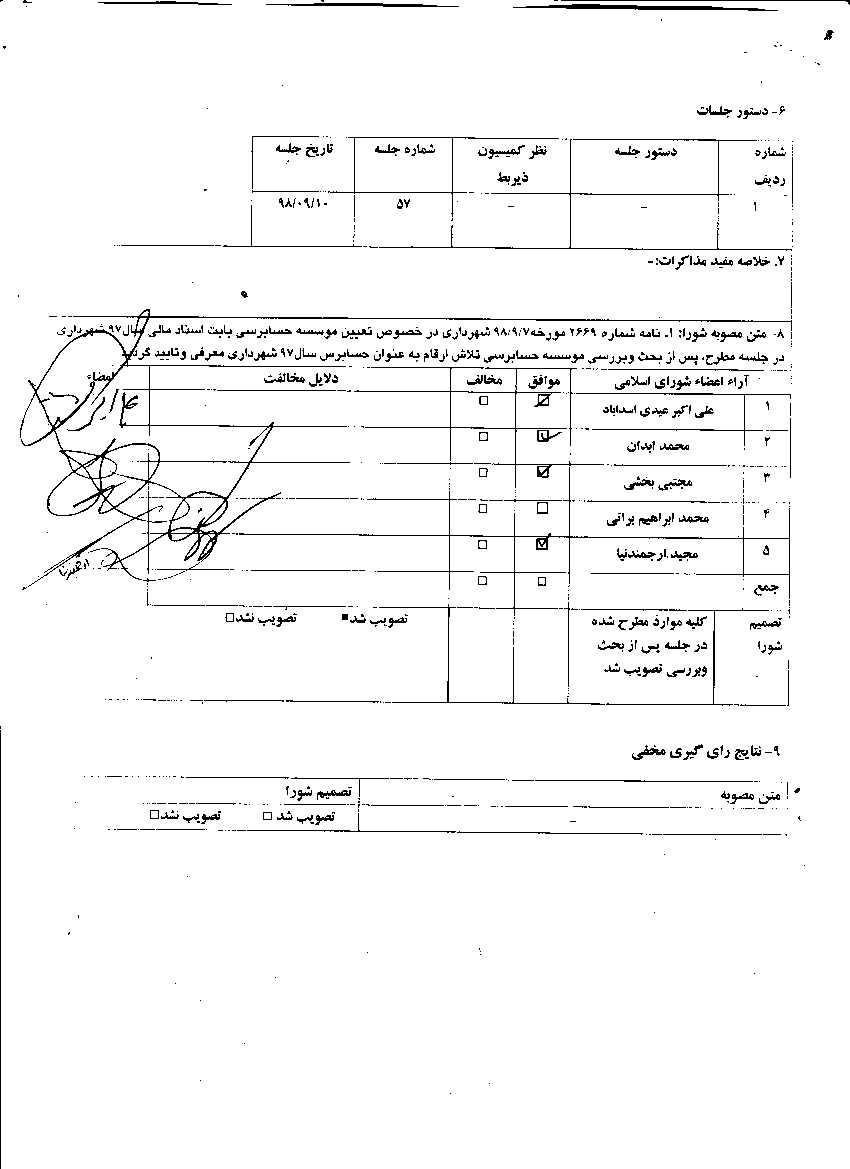 ۶- دستور جلسات
شماره ردیف
دستور جلسه
نظر کمیسیون ذیربط
شماره جلسه
تاریخ جلسه
۱
-
-
۵۷
۹۸/۰۹/۱۰
۷. خلاصه مفید مذاکرات:-
۸- متن مصوبه شورا: ۱- نامه شماره ۲۶۶۹ مورخه ۹۸/۹/۷ شهرداری در خصوص تعیین موسسه حسابرسی بابت اسناد مالی سال۹۷ شهرداری
در جلسه مطرح، پس از بحث وبررسی موسسه حسابرسی تلاش ارقام به عنوان حسابرس سال۹۷ شهرداری معرفی وتایید گردید
آراء اعضاء شورای اسلامی
موافق
مخالف
دلایل مخالفت
امضاء
۱
علی اکبر عیدی اسدآباد
☑
□
۲
محمد ابدان
☑
□
۳
مجتبی بخشی
☑
□
۴
محمد ابراهیم براتی
□
□
۵
مجید ارجمندنیا
☑
□
جمع
□
□
تصمیم شورا
کلیه موارد مطرح شده
در جلسه پس از بحث
وبررسی تصویب شد
تصویب شد■
تصویب نشد□
۹- نتایج رای گیری مخفی
متن مصوبه
تصمیم شورا
-
تصویب شد □
تصویب نشد□